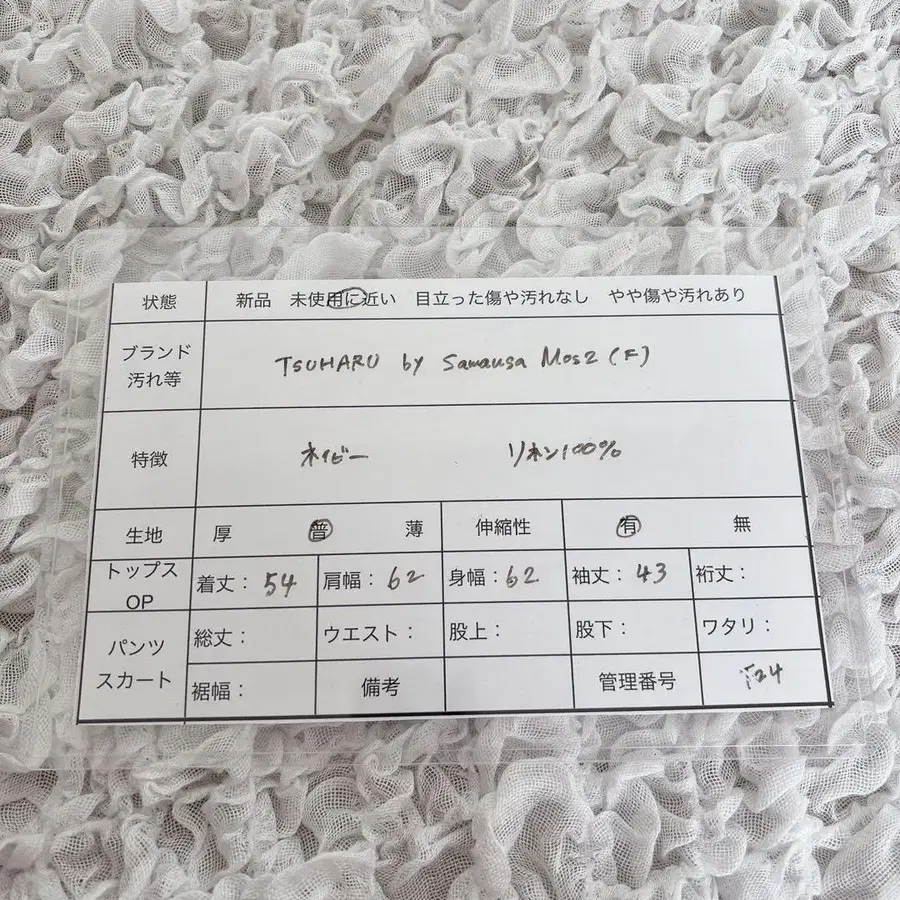 状態 新品 未使用に近い 目立った傷や汚れなし やや傷や汚れあり
ブランド
汚れ等
TSUHARU by Samansa Mos2 (F)
特徴 ネイビー リネン100%
生地 厚 普 薄 伸縮性 有 無
トップス
OP
着丈：54 肩幅：62 身幅：62 袖丈：43 裄丈：
パンツ
スカート
総丈： ウエスト： 股上： 股下： ワタリ：
裾幅： 備考 管理番号 24